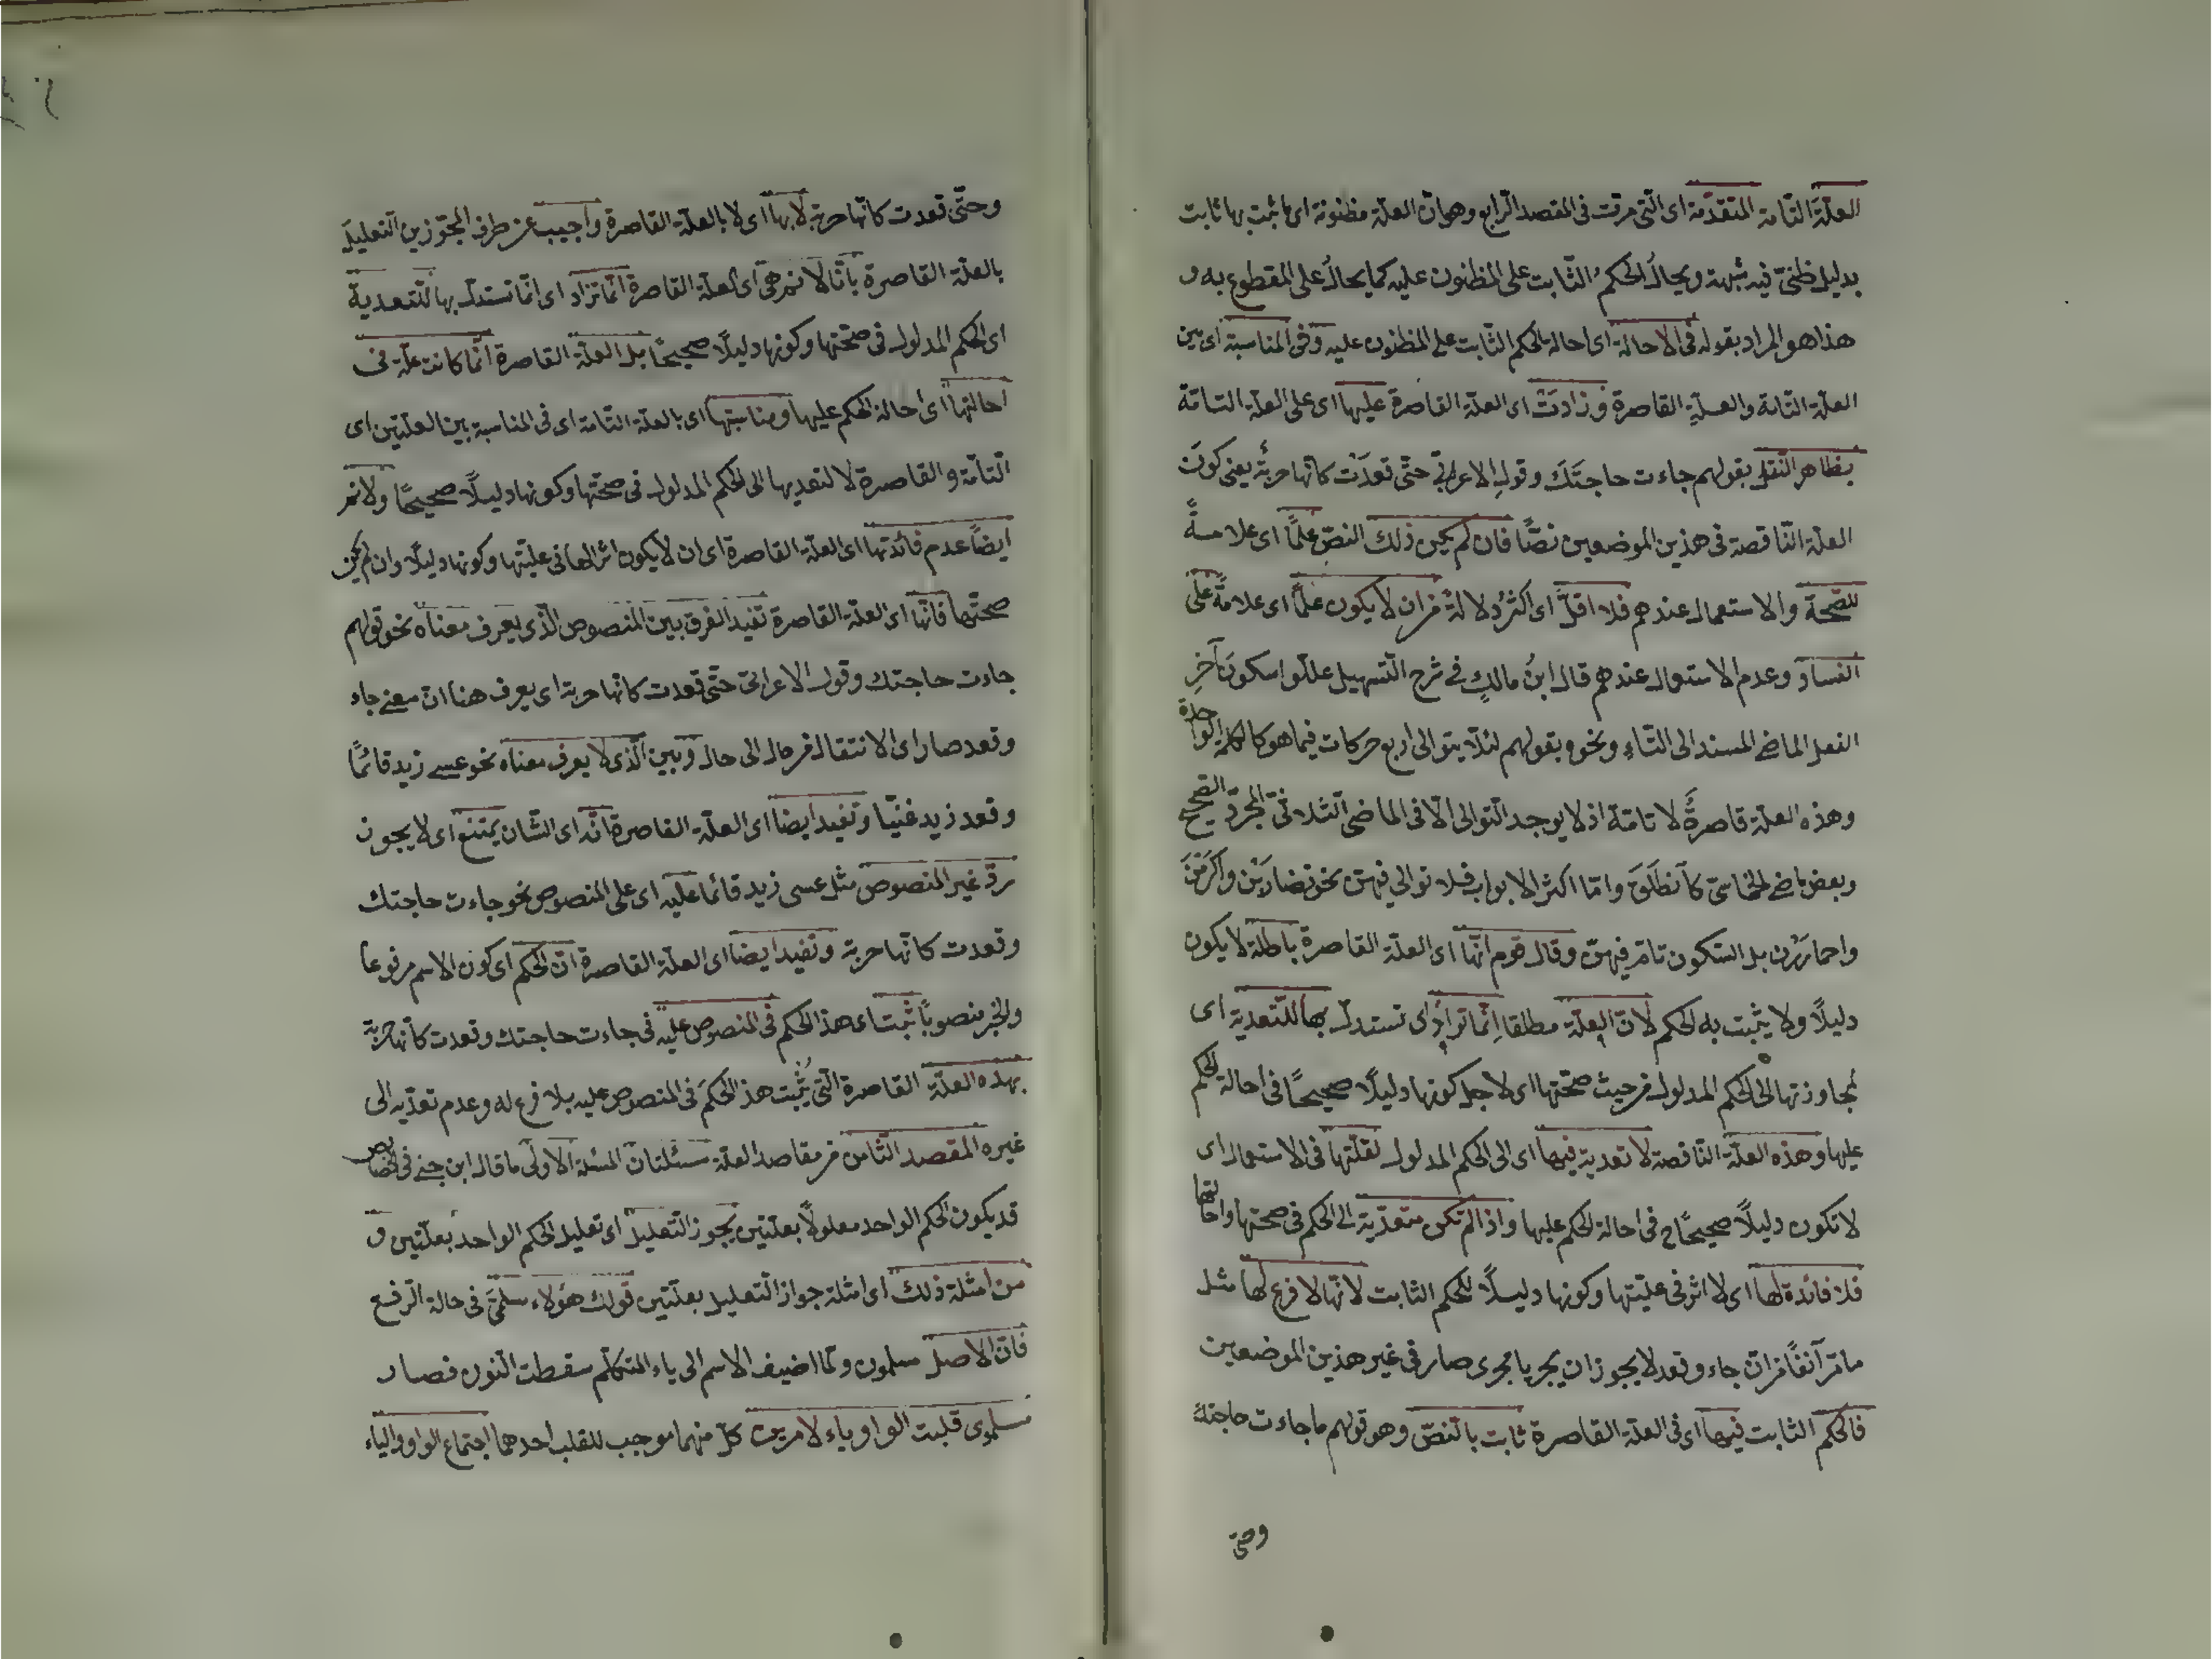 العلّة التامة المتقدّمة اى الّتى مرّت فى المقصد الرابع وهى انّ العلّة مظنونة اى ما ثبت بها ثابت
بدليل ظنّىّ فيه شبهة ويحال الحكمُ الثّابت على المظنون عليه كما يحالُ على المقطوع به و
هذا هو المراد بقوله فى الاحالة اى احالة الحكم الثّابت على المظنون عليه وفى المناسبة اى بين
العلّة التامة والعلّةِ القاصرة وزادَتْ اى العلّة القاصرة عليها اى على العلّة التامّة
بظاهر النّقل بقولهم جاءت حاجتَك وقولِ الاعرابىّ حتّى قعدَت كانّها حربةٌ يعنى كونَ
العلّة النّاقصة فى هذين الموضعين نصًّا فان لم يكن ذلك النصّ علمًا اى علامةً
للصّحة والاستعمال عندهم فلا اقلّ اى اكثرُ دلالةً من ان لا يكون علمًا اى علامةً على
الفساد وعدم الاستعمال عندهم قال ابنُ مالكٍ فى شرح التّسهيل علّلوا سكونَ آخرِ
الفعل الماضى المسند الى التّاءِ ونحوه بقولهم لئلّا يتوالى اربع حركات فيما هو كالكلمة الواحدة
وهذه العلّة قاصرةٌ لا تامّة اذ لا يوجد التّوالى الّا فى الماضى الثّلاثىّ المجرّد الصّحيح
وبعض ماضى الخماسىّ كانطلَقَ وامّا اكثر الابواب فلا توالى فيهنّ نحو تضاربْن واكرمْنَ
واحماررْن بل السّكون تامّ فيهنّ وقال قوم انّها اى العلّة القاصرة باطلة لا يكون
دليلًا ولا يثبت به الحكم لانّ العلّة مطلقا اِنّما ترادُ اى تستدلّ بها للتّعدية اى
لمجاوزتها الى الحكم المدلول من حيث صحّتها اى لاجل كونها دليلًا صحيحًا فى احالة الحكم
عليها وهذه العلّة النّاقصة لا تعدية فيها اى الى الحكم المدلول لقلّتها فى الاستعمال اى
لا تكون دليلًا صحيحًا فى احالة الحكم عليها واذا لم تكن متعدّية الى الحكم فى صحتها واحالتها
فلا فائدة لها اى لا اثر فى علّيتها وكونها دليلًا للحكم الثابت لانّها لا فرع لها مثل
ما مرّ آنفًا من انّ جاء وقعد لا يجوز ان يجريا مجرى صار فى غير هذين الموضعين
فالحكم الثابت فيها اى فى العلّة القاصرة ثابت بالنّصّ وهو قولهم ما جاءت حاجتك
وحتى
وحتّى قعدت كانّها حربة لا بها اى لا بالعلّة القاصرة واجيب عن طرف المجوّزين التّعليلَ
بالعلّة القاصرة بانّا لا نم هى اى العلّة القاصرة انّما تراد اى انّما تستدلّ بها للتّعدية
اى الحكم المدلول فى صحّتها وكونها دليلًا صحيحًا بل العلّة القاصرة انّما كانت علّة فى
احالتها اى احالة الحكم عليها ومناسبتها اى بالعلّة التّامة اى فى المناسبة بين العلّتين اى
التّامّة والقاصرة لا لتعديها الى الحكم المدلول فى صحّتها وكونها دليلًا صحيحًا ولا نم
ايضًا عدم فائدتها اى العلّة القاصرة اى ان لا يكون اثر لها فى علّيتها وكونها دليلًا وان لم يكن
صحّتها فانّها اى العلّة القاصرة تفيد الفرق بين المنصوص الّذى يعرف معناه نحو قولهم
جاءت حاجتك وقول الاعرابىّ حتّى قعدت كانّها حربة اى يعرف هنا انّ معنى جاء
وقعد صار اى الانتقال من حال الى حال وبين الّذى لا يعرف معناه نحو عسى زيد قائمًا
وقعد زيد غنيّا وتفيد ايضا اى العلّة القاصرة انّه اى الشّان يمتنع اى لا يجوز
ردّ غير المنصوص مثل عسى زيد قائما عليه اى على المنصوص نحو جاءت حاجتك
وقعدت كانّها حربة وتفيد ايضا اى العلّة القاصرة انّ الحكم اى كون الاسم مرفوعا
والخبر منصوبًا ثبت اى هذا الحكم فى المنصوص عليه فى جاءت حاجتك وقعدت كانّها حربة
بهذه العلّة القاصرة الّتى يُثْبِت هذا الحكمَ فى المنصوص عليه بلا فرع له وعدم تعدّيه الى
غيره المقصد الثّامن من مقاصد العلّة مسئلتان المسئلة الاولى ما قال ابن جنى فى الخصائص
قد يكون الحكم الواحد معلولًا بعلّتين يجوز التّعليل اى تعليل الحكم الواحد بعلّتين و
من امثلة ذلك اى امثلة جواز التّعليل بعلّتين قولك هؤلاء مسلمىّ فى حالة الرّفع
فانّ الاصل مسلمون ولمّا اضيف الاسم الى ياء المتكلّم سقطت النّون فصار
مسلموى قلبت الواو ياء لامرين كلّ منهما موجب للقلب احدهما اجتماع الواو والياء